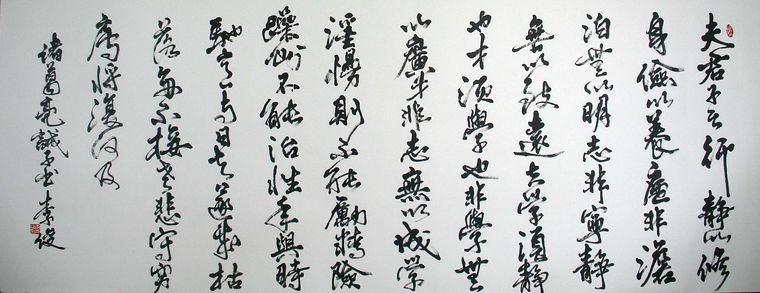 夫君子之行靜以修
身儉以養非澹
泊無以明志非寧靜
無以致遠夫學須靜
也才須學也非學無
以廣才非志無以成學
淫慢則不能勵精險
躁則不能治性年與時
馳意與日去遂成枯
落多不接世悲守窮
廬將復何及
諸葛亮誡子書李